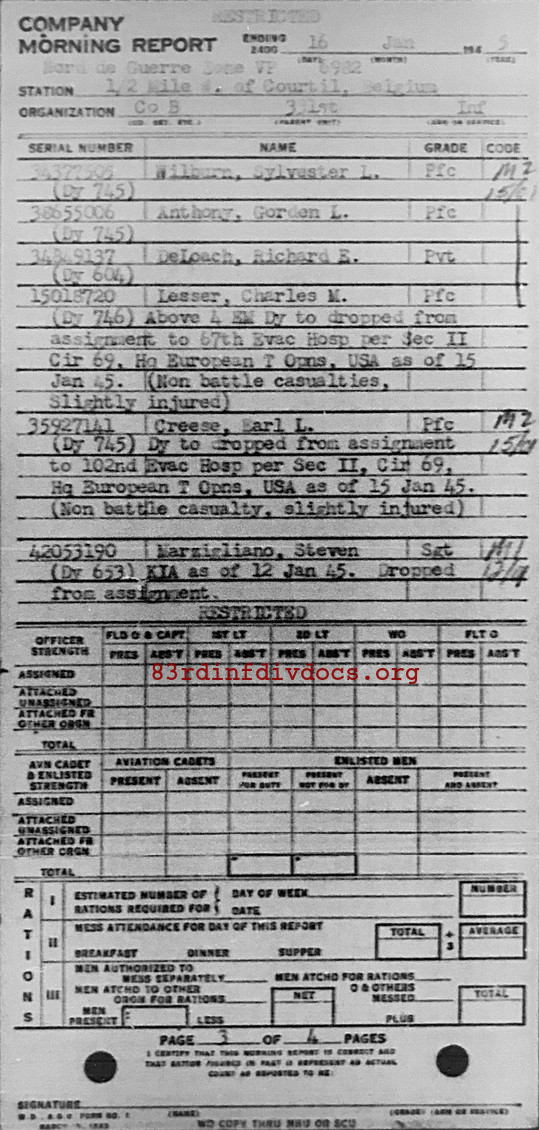 RESTRICTED
COMPANY
MORNING REPORT ENDING 2400 16 Jan 194 5
(DAY) (MONTH) (YEAR)
Nord de Guerre Zone VP 6982
STATION 1/2 Mile W. of Courtil, Belgium
ORGANIZATION Co B 331st Inf
(CO. DET. ETC.) (PARENT UNIT) (ARM OR SERVICE)
SERIAL NUMBER NAME GRADE CODE
34377505 Wilburn, Sylvester L. Pfc M2
(Dy 745)
38655006 Anthony, Gorden L. Pfc
(Dy 745)
34849137 DeLoach, Richard E. Pvt
(Dy 604)
15018720 Lesser, Charles M. Pfc
(Dy 746) Above 4 EM Dy to dropped from
assignment to 67th Evac Hosp per Sec II
Cir 69, Hq European T Opns, USA as of 15
Jan 45. (Non battle casualties,
Slightly injured)
35927141 Creese, Earl L. Pfc M2
(Dy 745) Dy to dropped from assignment
to 102nd Evac Hosp per Sec II, Cir 69,
Hq European T Opns, USA as of 15 Jan 45.
(Non battle casualty, slightly injured)
42053190 Marzigliano, Steven Sgt M1
(Dy 653) KIA as of 12 Jan 45. Dropped
from assignment.
RESTRICTED
OFFICER STRENGTH FLD O & CAPT 1ST LT 2D LT WO FLT O
PRES ABS'T PRES ABS'T PRES ABS'T PRES ABS'T PRES ABS'T
83rdinfdivdocs.org
ASSIGNED
ATTACHED UNASSIGNED
ATTACHED FR OTHER ORGN
TOTAL
AVN CADET & ENLISTED STRENGTH AVIATION CADETS ENLISTED MEN
PRESENT ABSENT PRESENT FOR DUTY PRESENT NOT FOR DY ABSENT PRESENT AND ABSENT
ASSIGNED
ATTACHED UNASSIGNED
ATTACHED FR OTHER ORGN
TOTAL
RATIONS
I ESTIMATED NUMBER OF RATIONS REQUIRED FOR DAY OF WEEK DATE NUMBER
II MESS ATTENDANCE FOR DAY OF THIS REPORT TOTAL ÷ 3 AVERAGE
BREAKFAST DINNER SUPPER
III MEN AUTHORIZED TO MESS SEPARATELY MEN ATCHD FOR RATIONS
MEN ATCHD TO OTHER ORGN FOR RATIONS NET O & OTHERS MESSED TOTAL
MEN PRESENT LESS PLUS
PAGE 3 OF 4 PAGES
I CERTIFY THAT THIS MORNING REPORT IS CORRECT AND
SIGNATURE
W.D., A.G.O. FORM NO. 1 (NAME) (GRADE) (ARM OR SERVICE)
WD COPY THRU MRU OR SCU